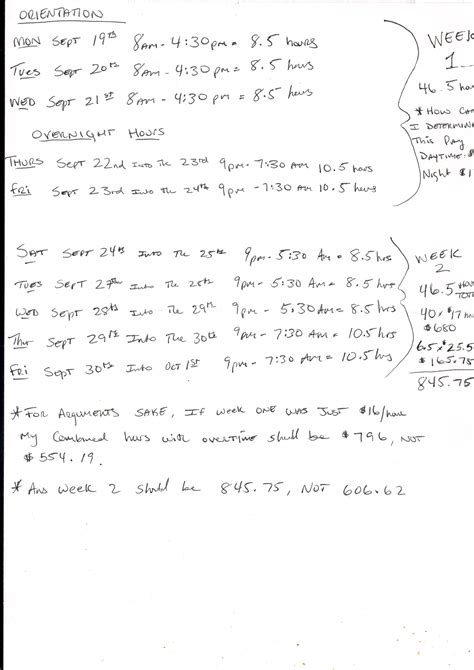 ORIENTATION
MON SEPT 19th 8AM - 4:30pm = 8.5 hours
TUES SEPT 20th 8AM - 4:30pm = 8.5 hours
WED SEPT 21st 8AM - 4:30pm = 8.5 hours
WEEK
1
46.5 hou
* HOW CAN
I DETERMINE
This Pay
DAYTIME: $
Night $1
OVERNIGHT HOURS
THURS SEPT 22nd Into the 23rd 9pm - 7:30 AM 10.5 hours
FRI SEPT 23rd Into The 24th 9pm - 7:30 AM 10.5 hours
SAT SEPT 24th Into The 25th 9pm - 5:30 AM = 8.5 hrs
TUES SEPT 27th Into The 28th 9pm - 5:30 AM = 8.5 hrs
WED SEPT 28th Into The 29th 9pm - 5:30 AM = 8.5 hrs
Thur SEPT 29th Into The 30th 9pm - 7:30 AM = 10.5 hrs
FRI SEPT 30th Into Oct 1st 9pm - 7:30 AM = 10.5 hrs
WEEK
2
46.5 HOURS
TOTAL
40 x $17
$680
6.5 x $25.5
$165.75
845.75
* FOR Arguments SAKE, IF week one was JUST $16/hour
My Combined hours with overtime should be $796, NOT
$554.19.
* And week 2 should be 845.75, NOT 606.62